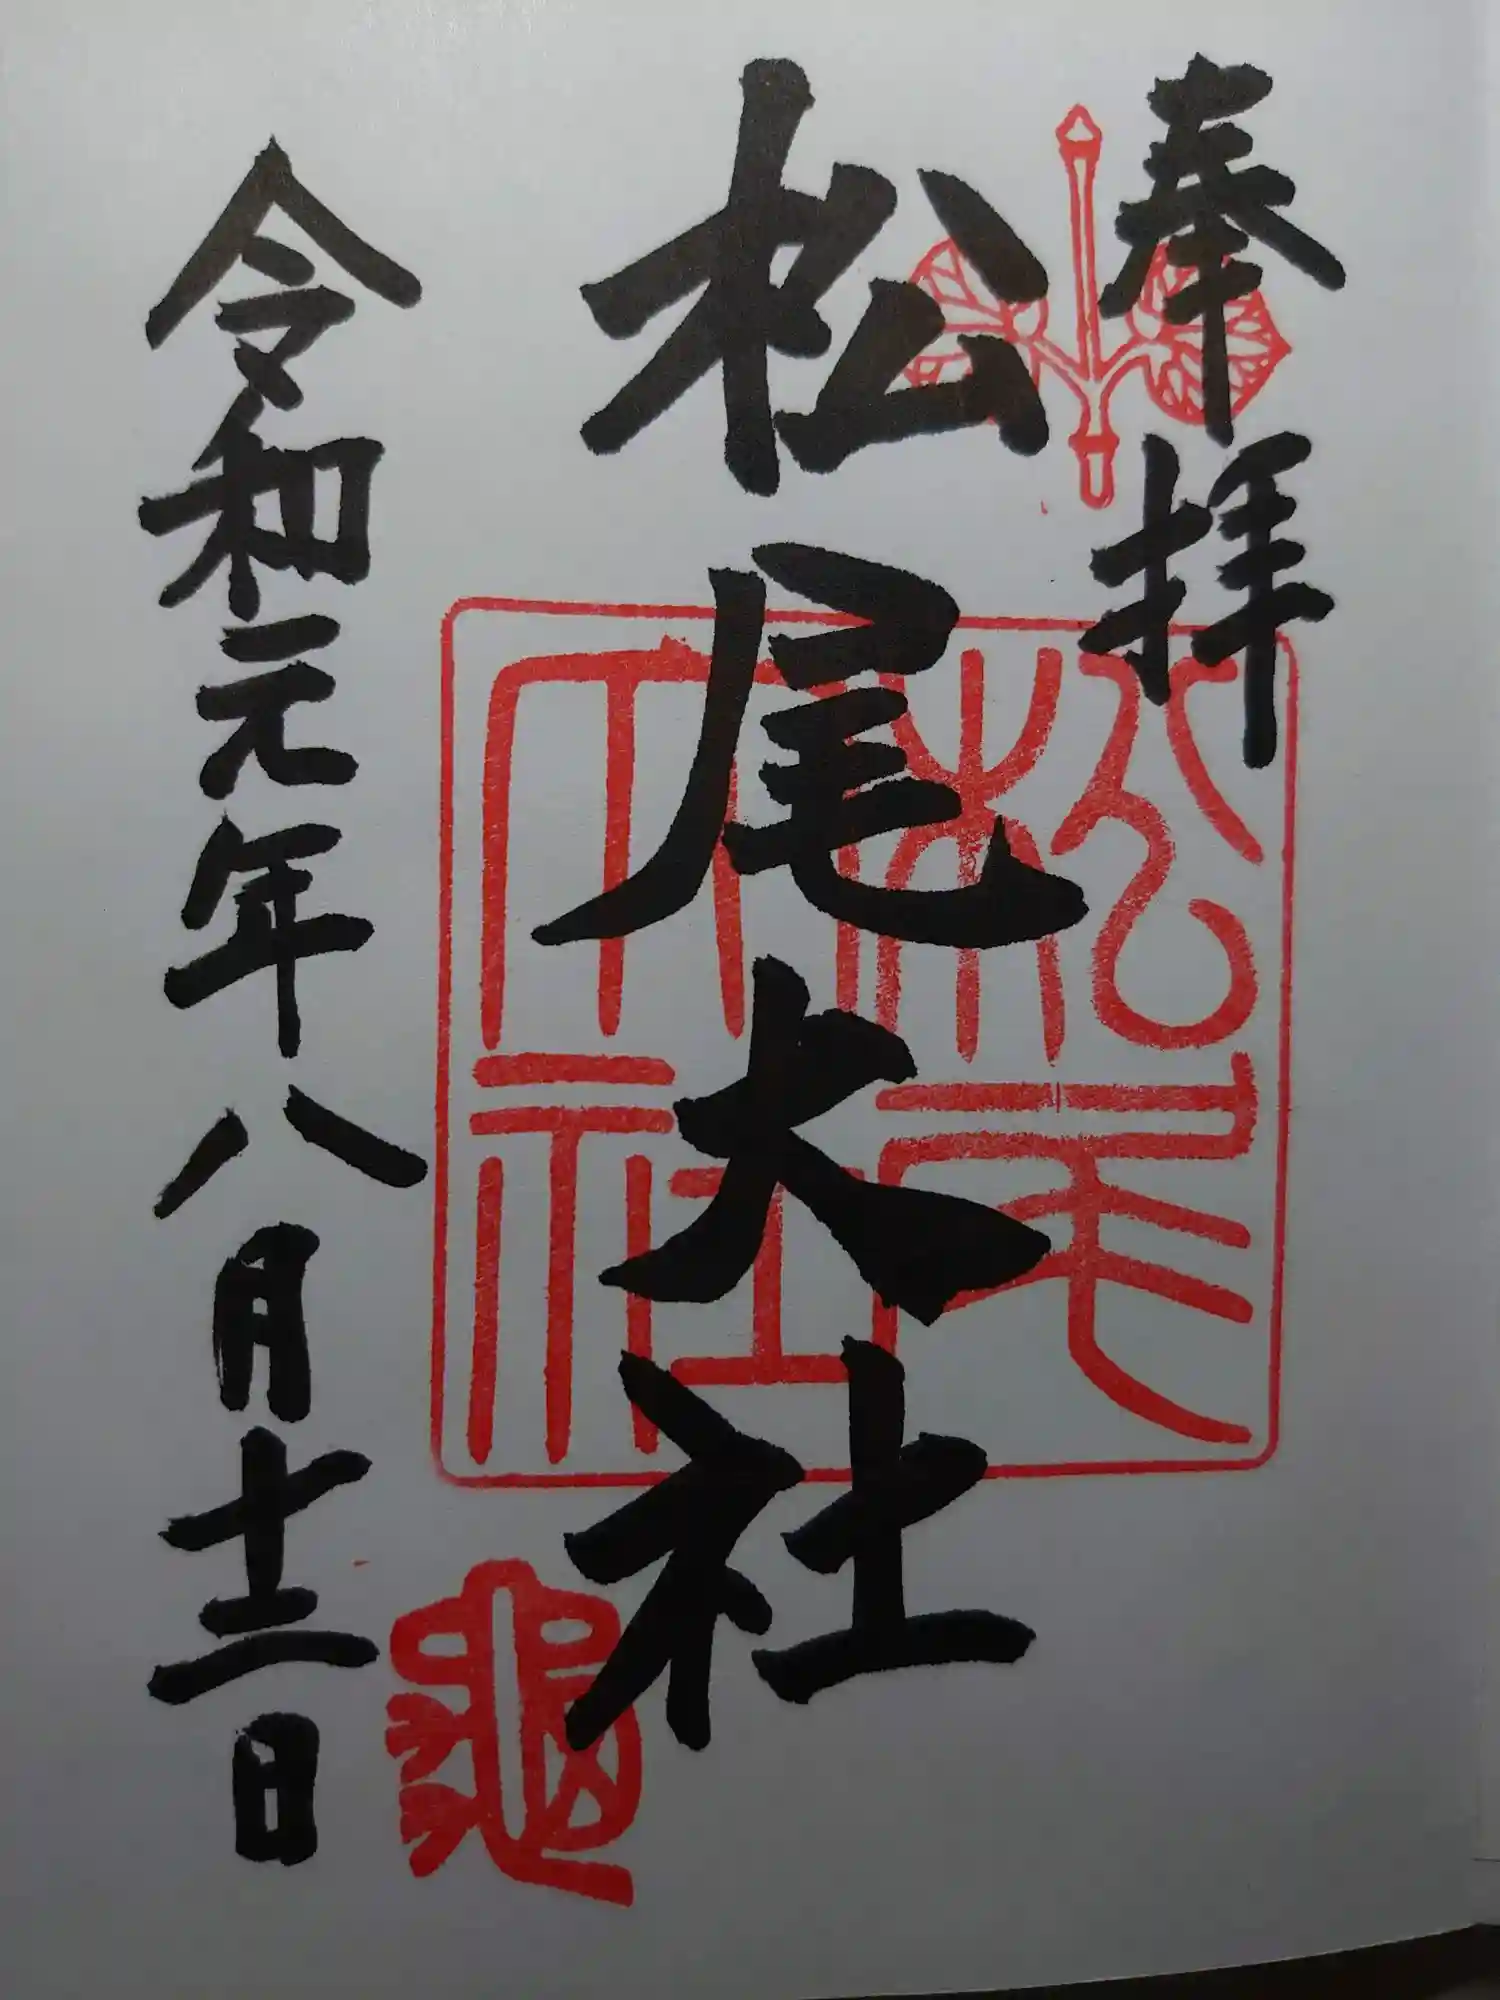 奉拝
松尾大社
令和元年八月十二日
松尾大社
亀